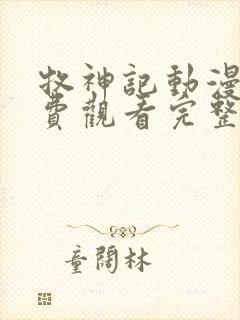 牧神記動漫
費觀看完整
童闊林